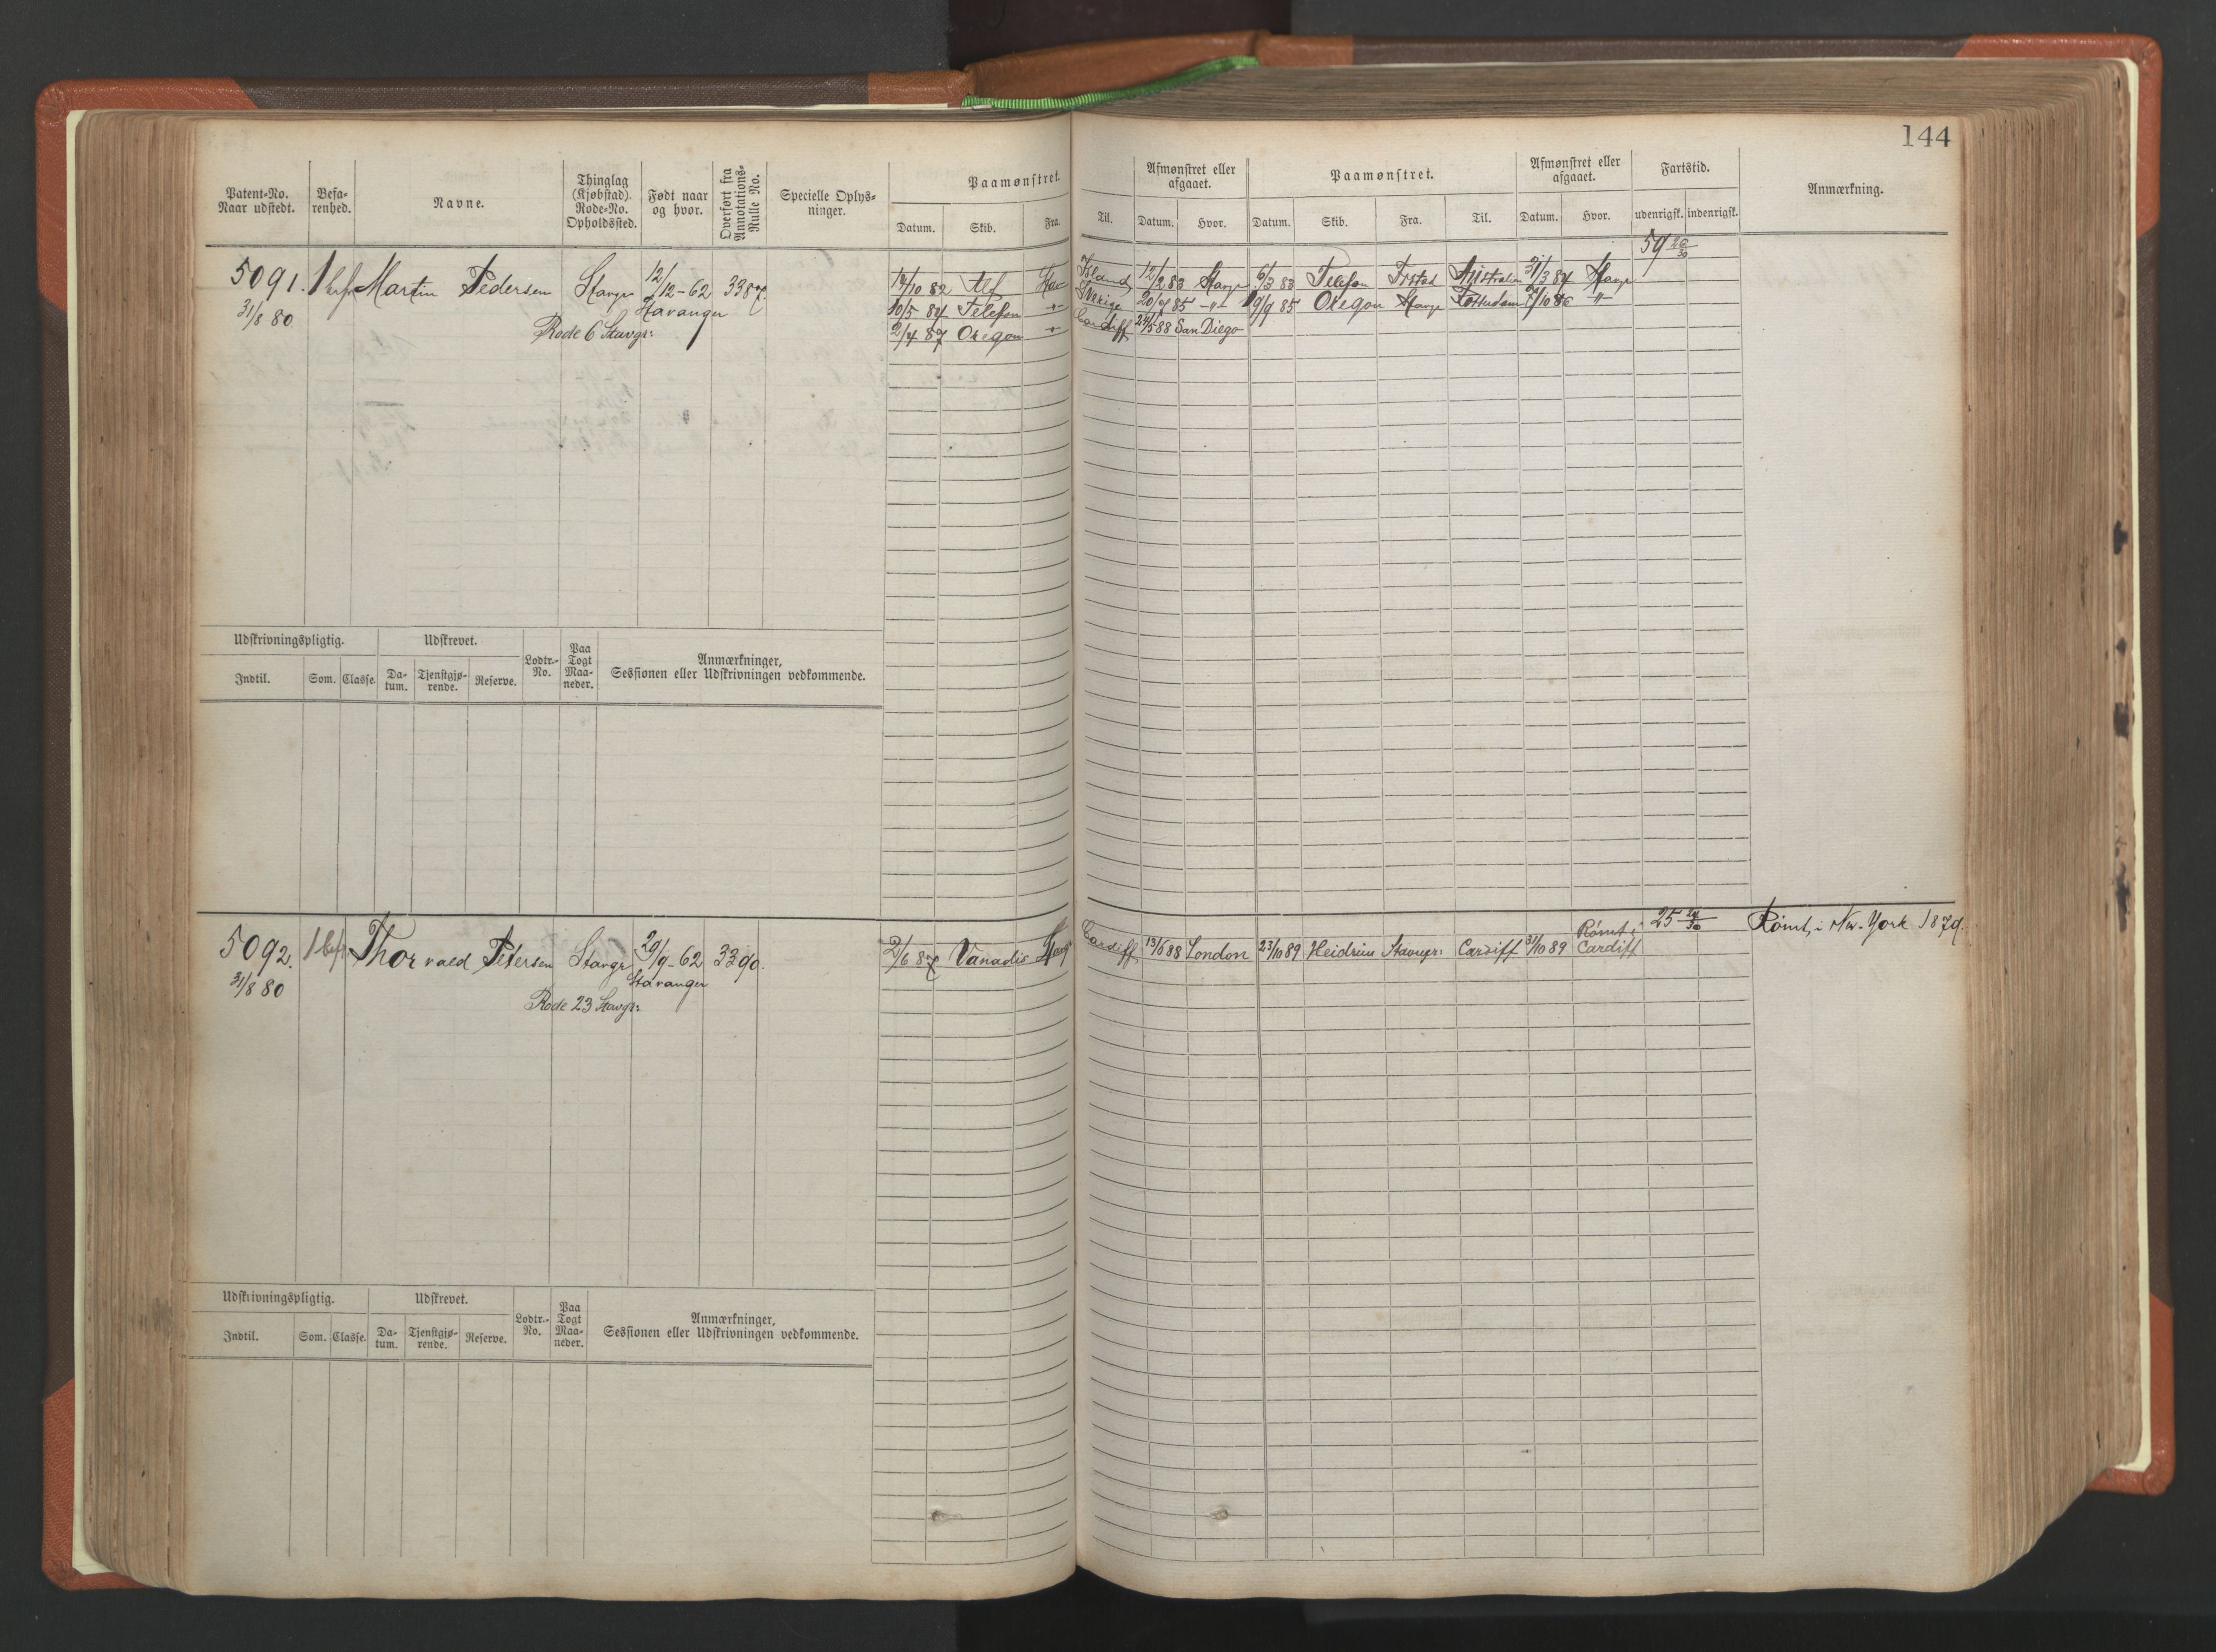 144
Patent-No. Naar udstedt. Befa-renhed. Navne. Thinglag (Kjøbstad). Rode-No. Opholdssted. Født naar og hvor. Overført fra Annotations-Rulle No. Specielle Oplys-ninger. Paamønstret. Afmønstret eller afgaaet. Paamønstret. Afmønstret eller afgaaet. Fartstid. Anmærkning.
Datum. Skib. Fra. Til. Datum. Hvor. Datum. Skib. Fra. Til. Datum. Hvor. udenrigsk. indenrigsk.
59 26/30
5091. Martin Pedersen Stavgr 12/12-62 19/10 82 Alf Island 12/2 83 Stavgr 6/3 83 Telefon Australien 31/3 84 Stavgr
31/8 80 Stavanger 10/5 84 Telefon -"- Sverige 85 -"- 9/9 85 Oregon Stavgr Rotterdam -"-
Rode 6 Stavgr: 2/4 87 Oregon -"- Cardiff 24/5 88 San Diego
Udskrivningspligtig. Udskrevet. Lodtr.-No. Paa Togt Maa-neder. Anmærkninger, Sessionen eller Udskrivningen vedkommende.
Indtil. Som. Classe. Da-tum. Tjenstgjø-rende. Reserve.
Rømt i 25 24/30 Rømt i New-York 1879.
5092. 1 bef Thorvald Petersen Stavgr 29/9-62 3390. 2/6 87 Vanadis Stavgr Cardiff 13/6 88 London 23/10 89 Heidrun Stavngr: Cardiff 31/10 89 Cardiff
31/8 80 Stavanger
Rode 23 Stavgr:
Udskrivningspligtig. Udskrevet. Lodtr.-No. Paa Togt Maa-neder. Anmærkninger, Sessionen eller Udskrivningen vedkommende.
Indtil. Som. Classe. Da-tum. Tjenstgjø-rende. Reserve.